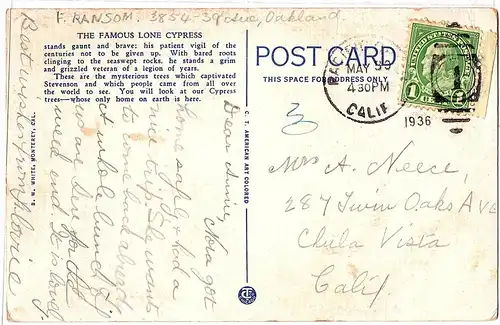 F. RANSOM. 3854-39 ave, Oakland.
THE FAMOUS LONE CYPRESS
stands gaunt and brave; his patient vigil of the
centuries not to be given over. With bared roots
clinging to the seaswept rocks, he stands a grim
and grizzled veteran of a legion of years.
These are the mysterious trees which captivated
Stevenson and which people came from all over
the world to see. You will look at our Cypress
trees—whose only home on earth is here.
Dear Annie,
Nora got
home safely & had a
nice trip. She wants
to come back already
A whole bunch of
us are here for the
week end. It is cool
Best wishes from Florrie
D. W. WHITE, MONTEREY, CAL.
C. T. AMERICAN ART COLORED
POST CARD
THIS SPACE FOR ADDRESS ONLY
MAY 30
4 30PM
CALIF
1936
1
Mrs A. Neece,
287 Twin Oaks Ave
Chula Vista
Calif.